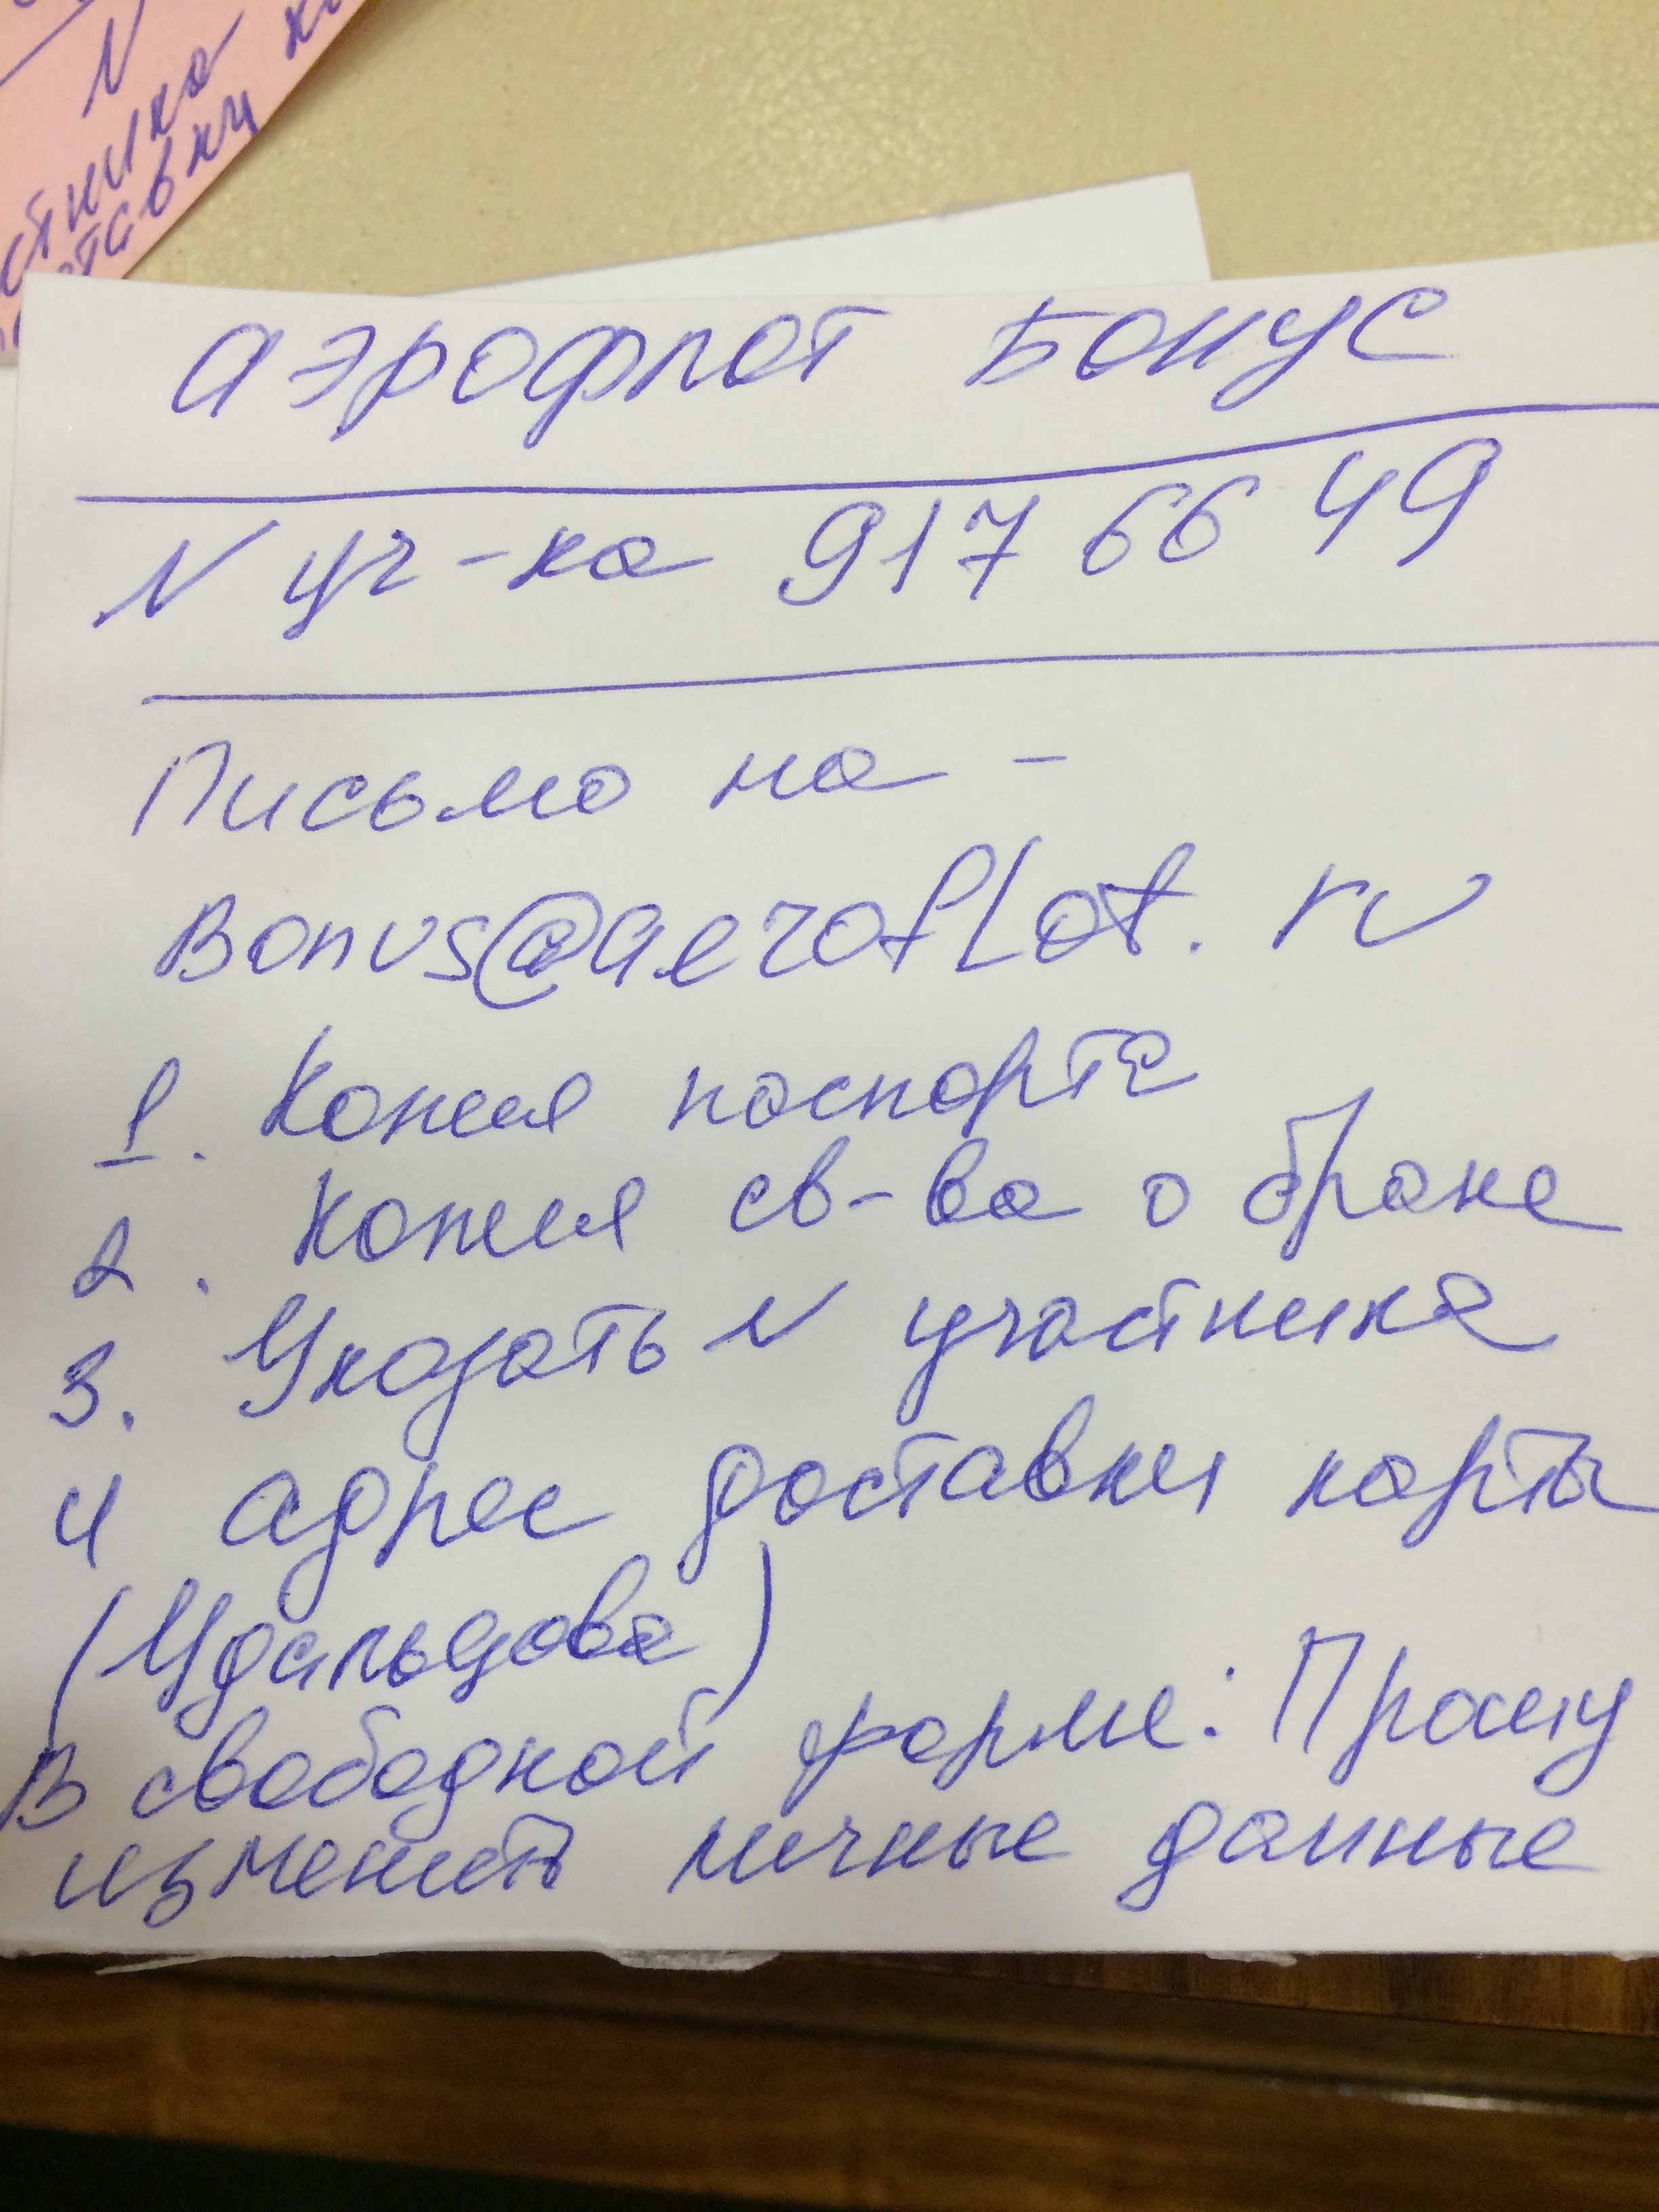 N
стника
ставки
Аэрофлот Бонус
N уч-ка 917 66 49
Письмо на -
Bonus@aeroflot.ru
1. Копия паспорта
2. Копия св-ва о браке
3. Указать N участника
4 адрес доставки карты
(Удальцова)
В свободной форме: Прошу
изменить личные данные